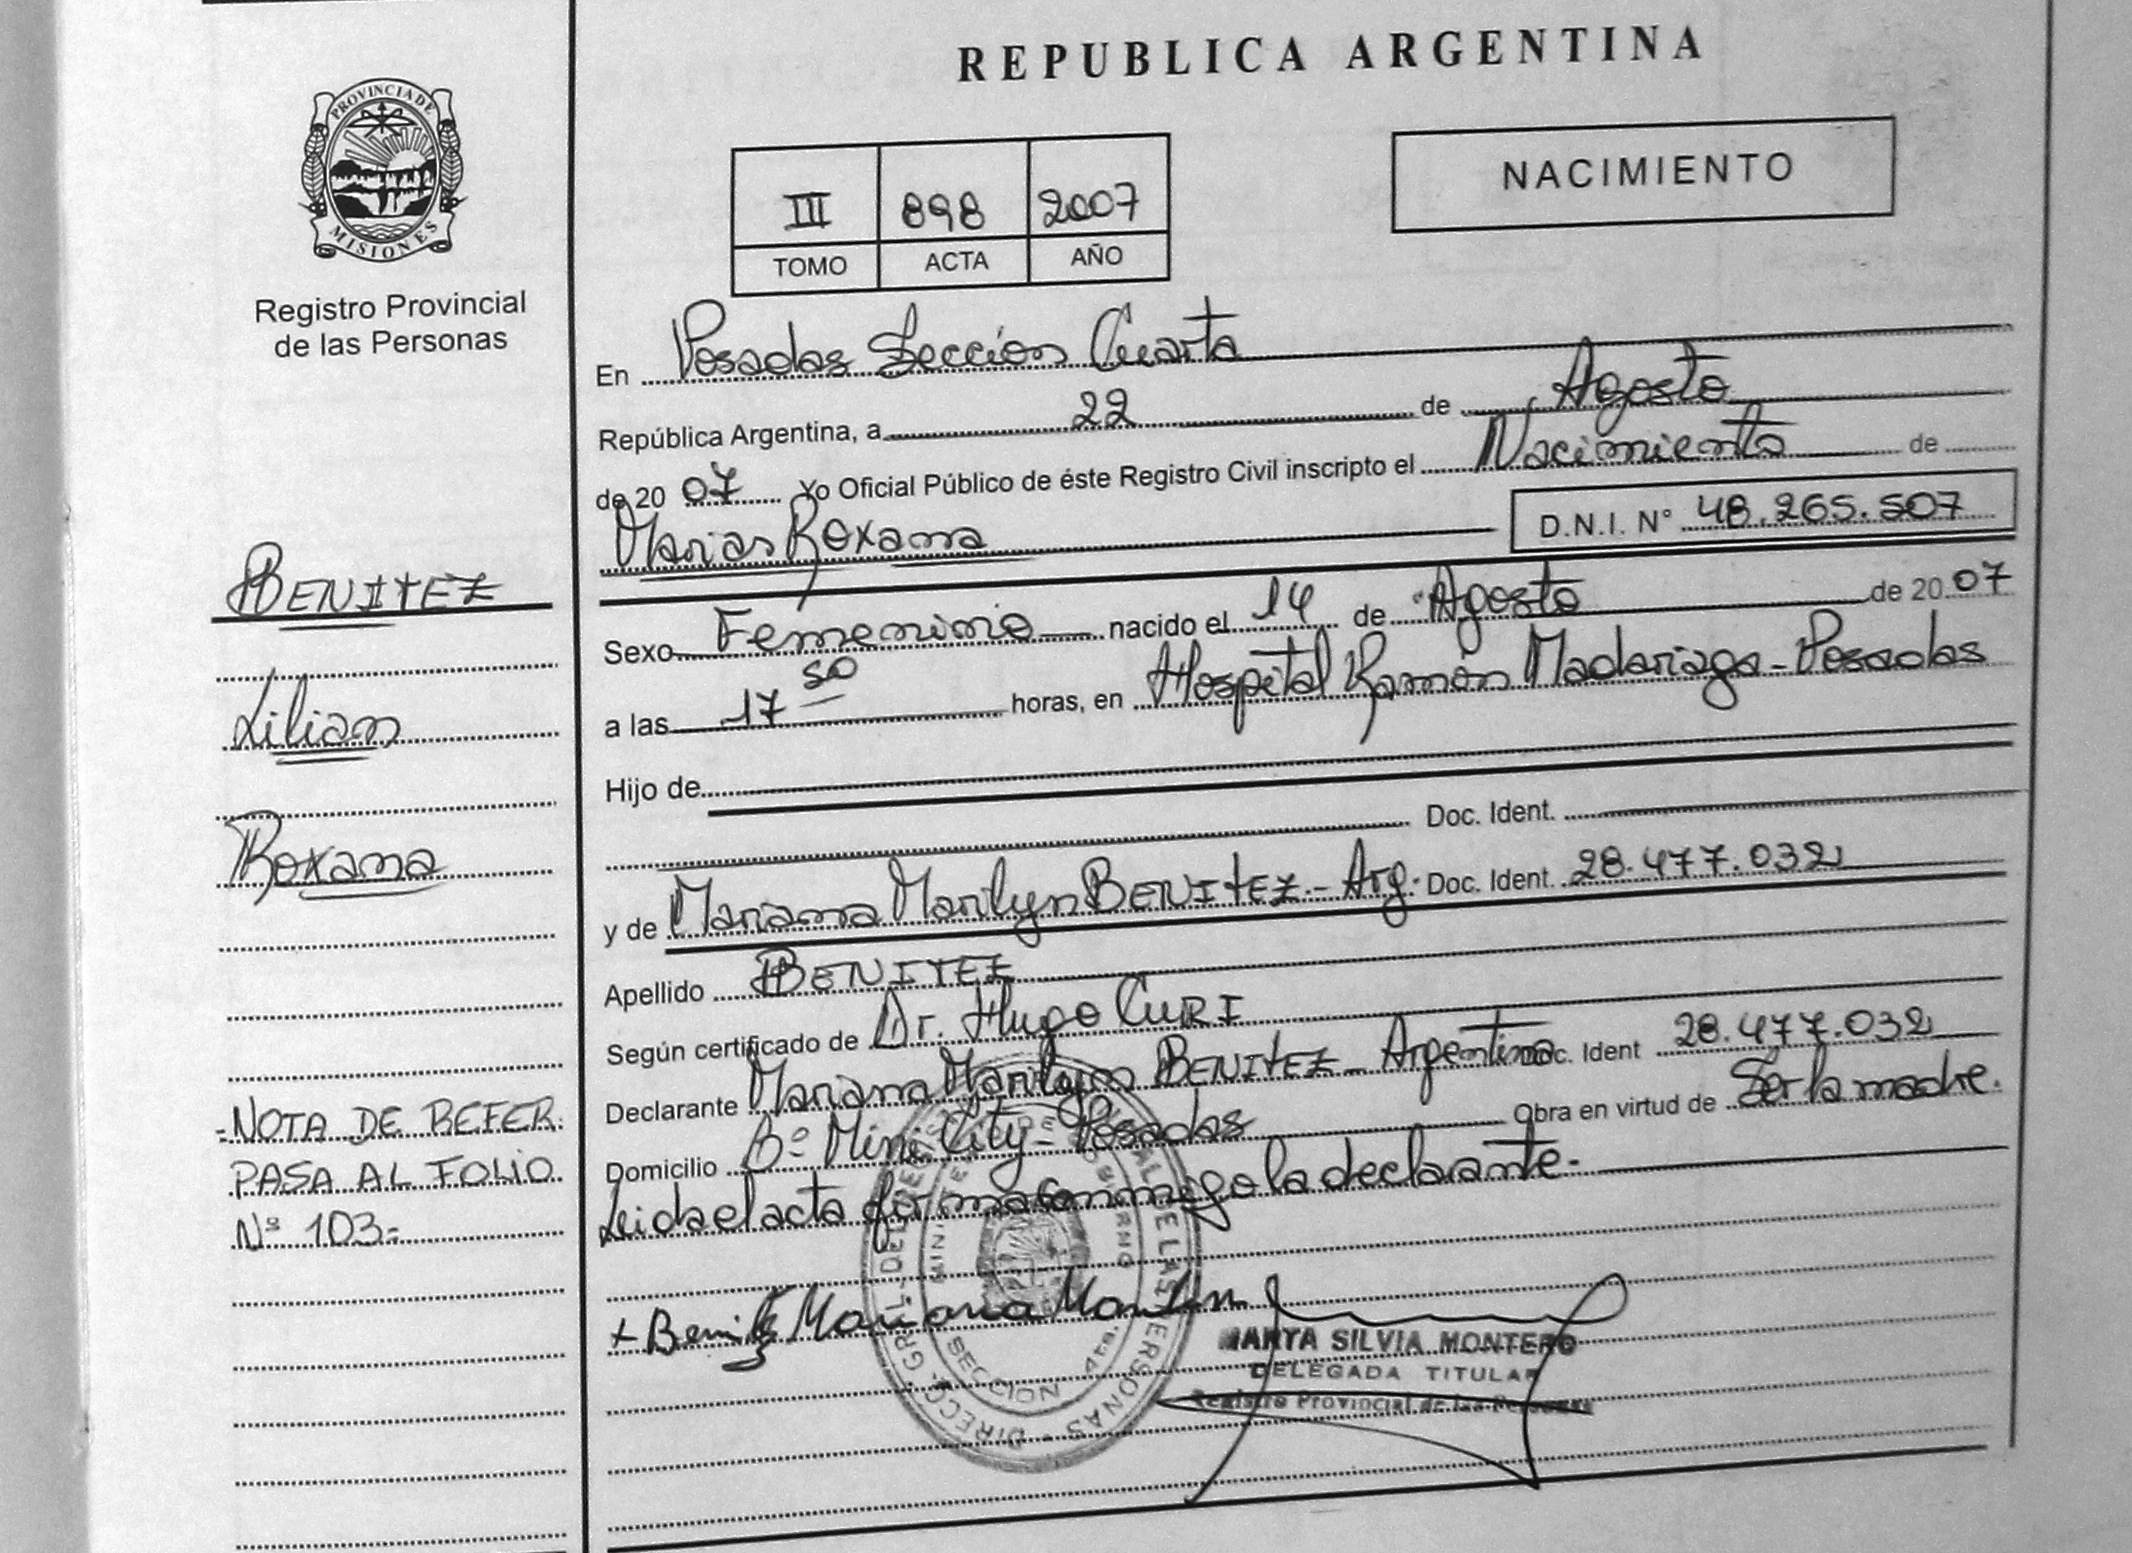 REPUBLICA ARGENTINA
PROVINCIA DE
MISIONES
Registro Provincial
de las Personas
NACIMIENTO
III 898 2007
TOMO ACTA AÑO
En Posadas Sección Cuarta
República Argentina, a 22 de Agosto
de 20 07 Yo Oficial Público de éste Registro Civil inscripto el Nacimiento de
Roxana D.N.I. N° 48.265.507
BENITEZ
Lilian
Roxana
Sexo Femenino nacido el 14 de Agosto de 20 07
a las 17 50 horas, en Hospital Ramón Madariaga - Posadas
Hijo de
Doc. Ident.
y de Mariana Marilyn BENITEZ - Arg. Doc. Ident. 28.477.032
Apellido BENITEZ
Según certificado de Dr. Hugo CURI
Declarante Mariana Marilyn BENITEZ - Argentina Doc. Ident 28.477.032
Domicilio B° Mini City - Posadas Obra en virtud de Ser la madre.
Leida el acta firma conmigo la declarante.-
- NOTA DE REFER.
PASA AL FOLIO
Nº 103-
+ Benitez Mariana
MARTA SILVIA MONTERO
DELEGADA TITULAR
Registro Provincial de las Personas
SECCION